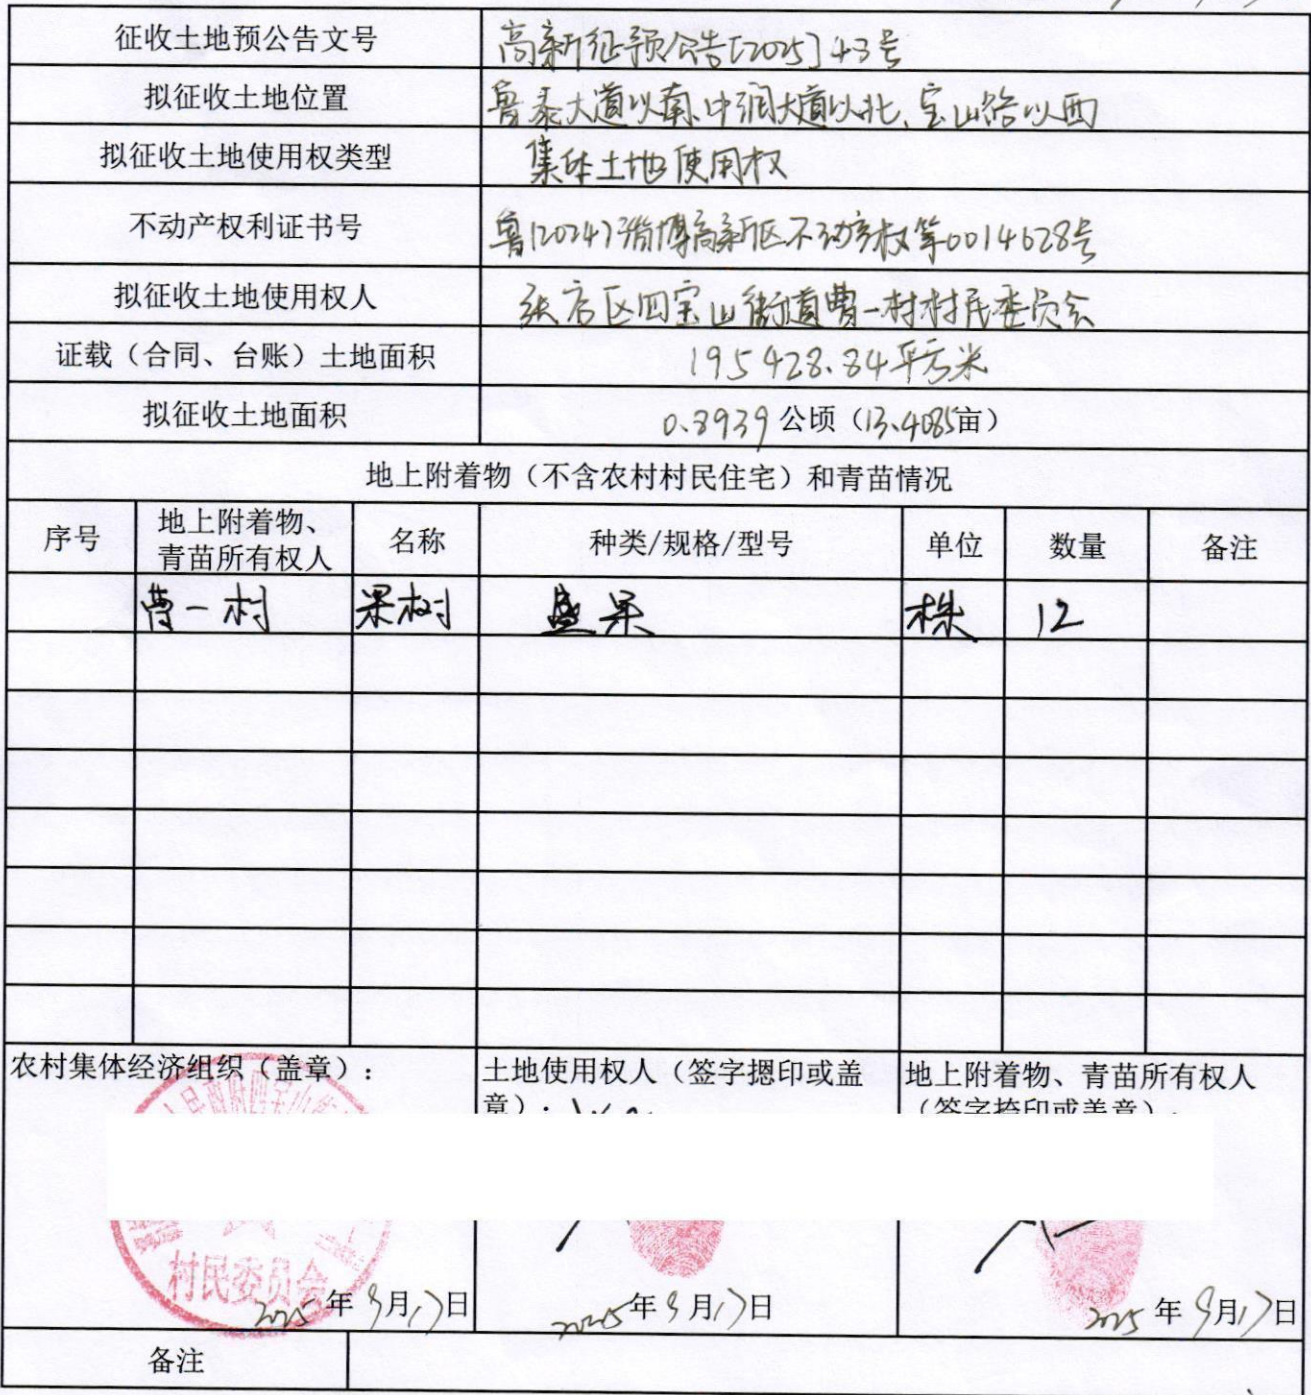 征收土地预公告文号 高新征预公告[2025]43号
拟征收土地位置 鲁泰大道以南、中润大道以北、宝山路以西
拟征收土地使用权类型 集体土地使用权
不动产权利证书号 鲁(2024)淄博高新区不动产权第0014628号
拟征收土地使用权人 张店区四宝山街道曹一村村民委员会
证载（合同、台账）土地面积 195428.84平方米
拟征收土地面积 0.8939公顷（13.4085亩）
地上附着物（不含农村村民住宅）和青苗情况
序号 地上附着物、青苗所有权人 名称 种类/规格/型号 单位 数量 备注
曹一村 果树 盛果 株 12
农村集体经济组织（盖章）： 土地使用权人（签字摁印或盖 地上附着物、青苗所有权人
章）： （签字捺印或盖章）：
村民委员会
2025年9月17日 2025年9月17日 2025年9月17日
备注